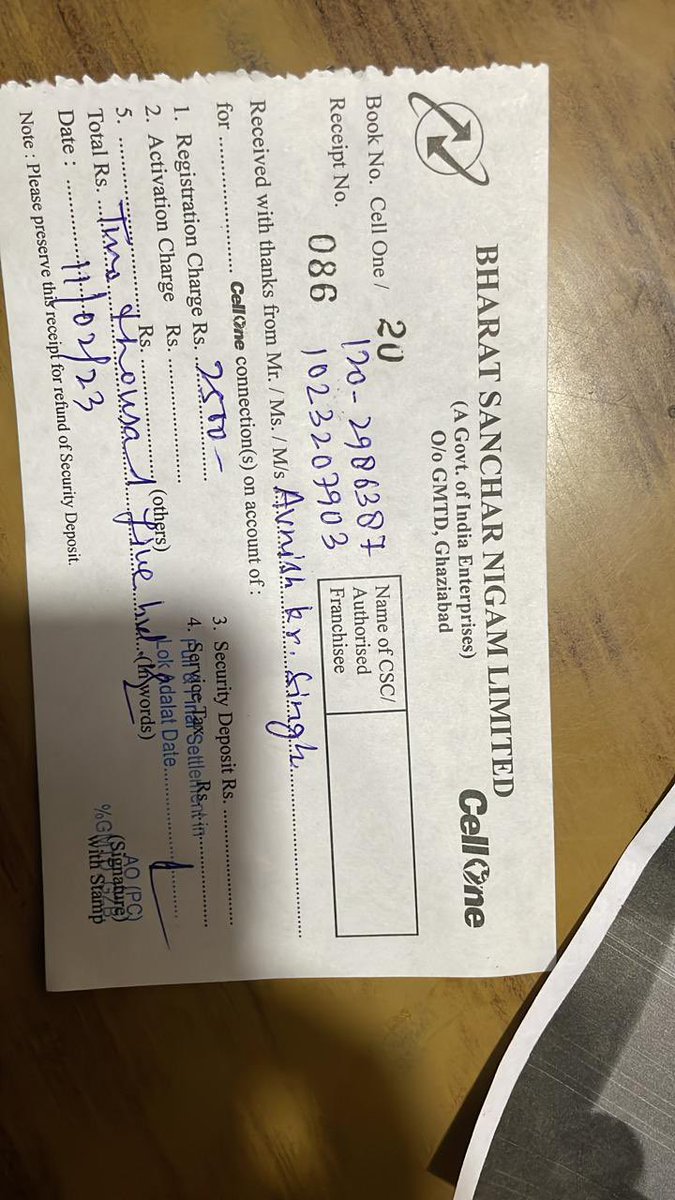 BHARAT SANCHAR NIGAM LIMITED
(A Govt. of India Enterprises)
O/o GMTD, Ghaziabad
CellOne
Book No. Cell One / 20
120-2986387
Receipt No. 086
1023207903
Name of CSC/
Authorised
Franchisee
Received with thanks from Mr. / Ms. / M/s Avnish kr. Singh
for .................... CellOne connection(s) on account of :
1. Registration Charge Rs. 2500-
3. Security Deposit Rs. ....................
2. Activation Charge Rs. ....................
4. Service Tax Rs. ....................
Full & Final Settlement in
Lok Adalat Date....................
5. .................... Rs. .................... (others)
Total Rs. Two thousand five hnd (In words)
Date : 11/02/23
AO (PC)
(Signature)
With Stamp
Note : Please preserve this receipt for refund of Security Deposit.